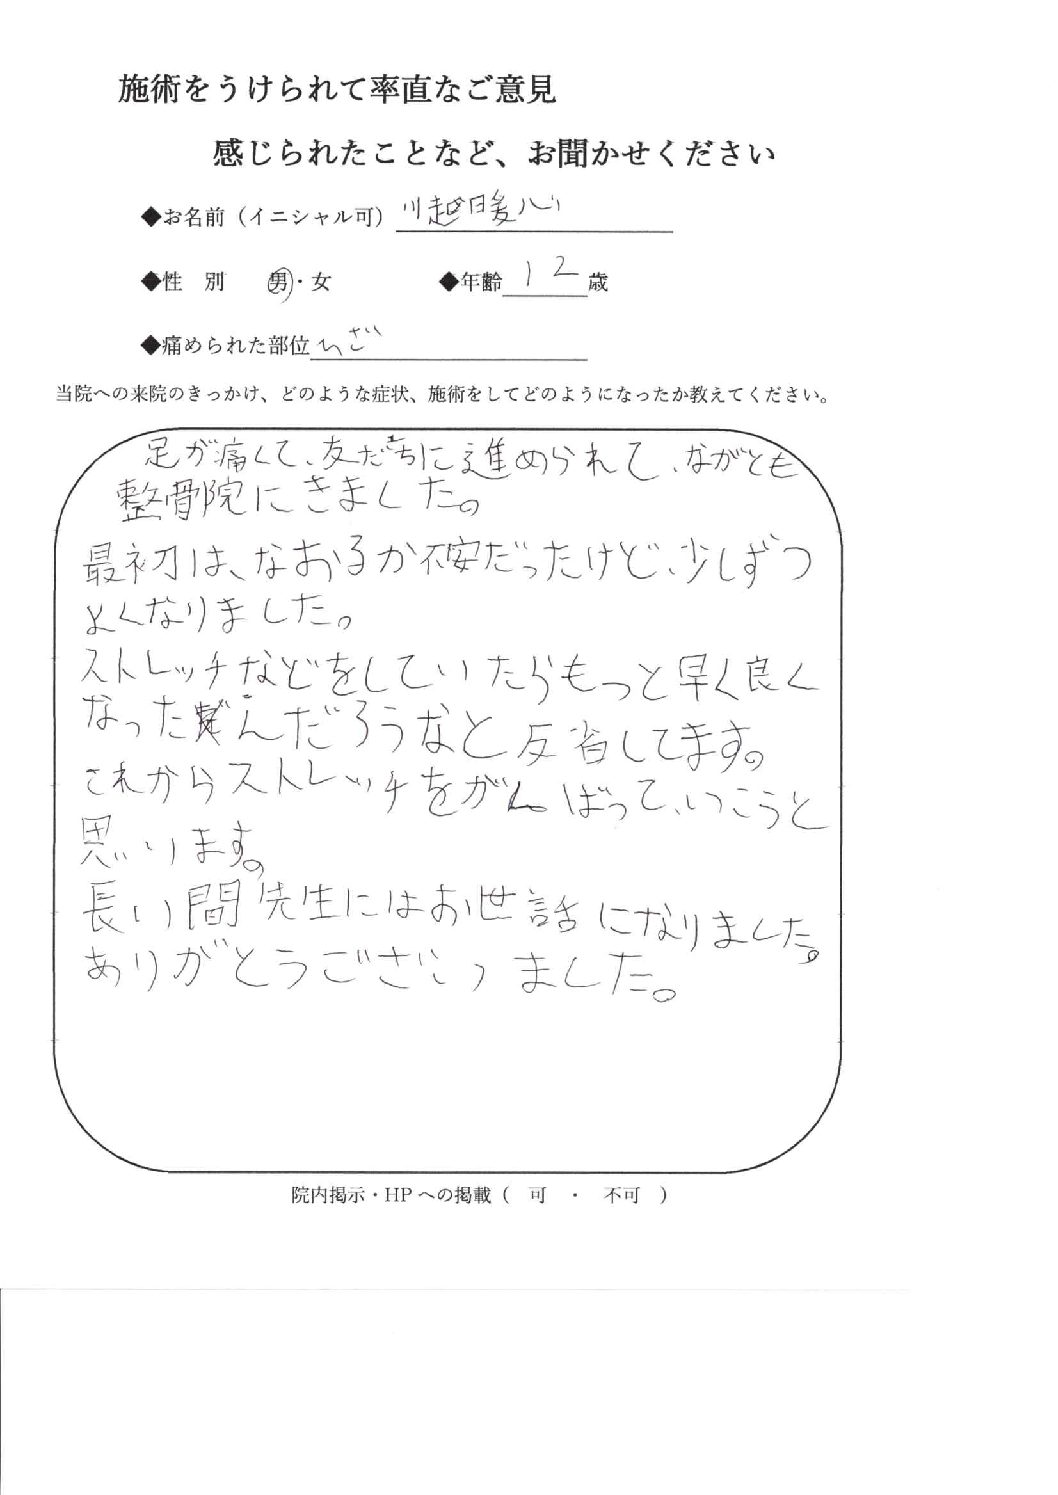 施術をうけられて率直なご意見
感じられたことなど、お聞かせください
◆お名前（イニシャル可） 川越暖心
◆性 別 男・女 ◆年齢 12 歳
◆痛められた部位 ひざ
当院への来院のきっかけ、どのような症状、施術をしてどのようになったか教えてください。
足が痛くて、友だちに進められて、ながとも
整骨院にきました。
最初は、なおるか不安だったけど、少しずつ
よくなりました。
ストレッチなどをしていたらもっと早く良く
なったんだろうなと反省してます。
これからストレッチをがんばって、いこうと
思います。
長い間先生にはお世話になりました。
ありがとうございました。
院内掲示・HPへの掲載（ 可 ・ 不可 ）